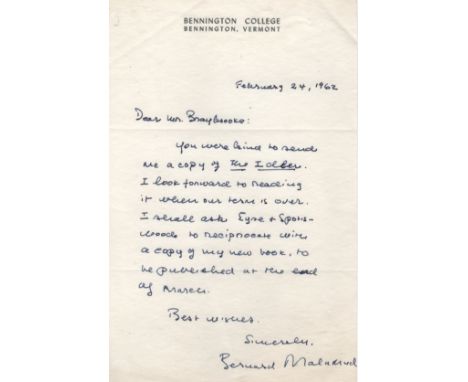 BENNINGTON COLLEGE
BENNINGTON, VERMONT
February 24, 1962
Dear Mr. Braybrooke:
You were kind to send
me a copy of The Idler.
I look forward to reading
it when our term is over.
I shall ask Eyre & Spottis-
woode to reciprocate with
a copy of my new book, to
be published at the end
of March.
Best wishes.
Sincerely,
Bernard Malamud